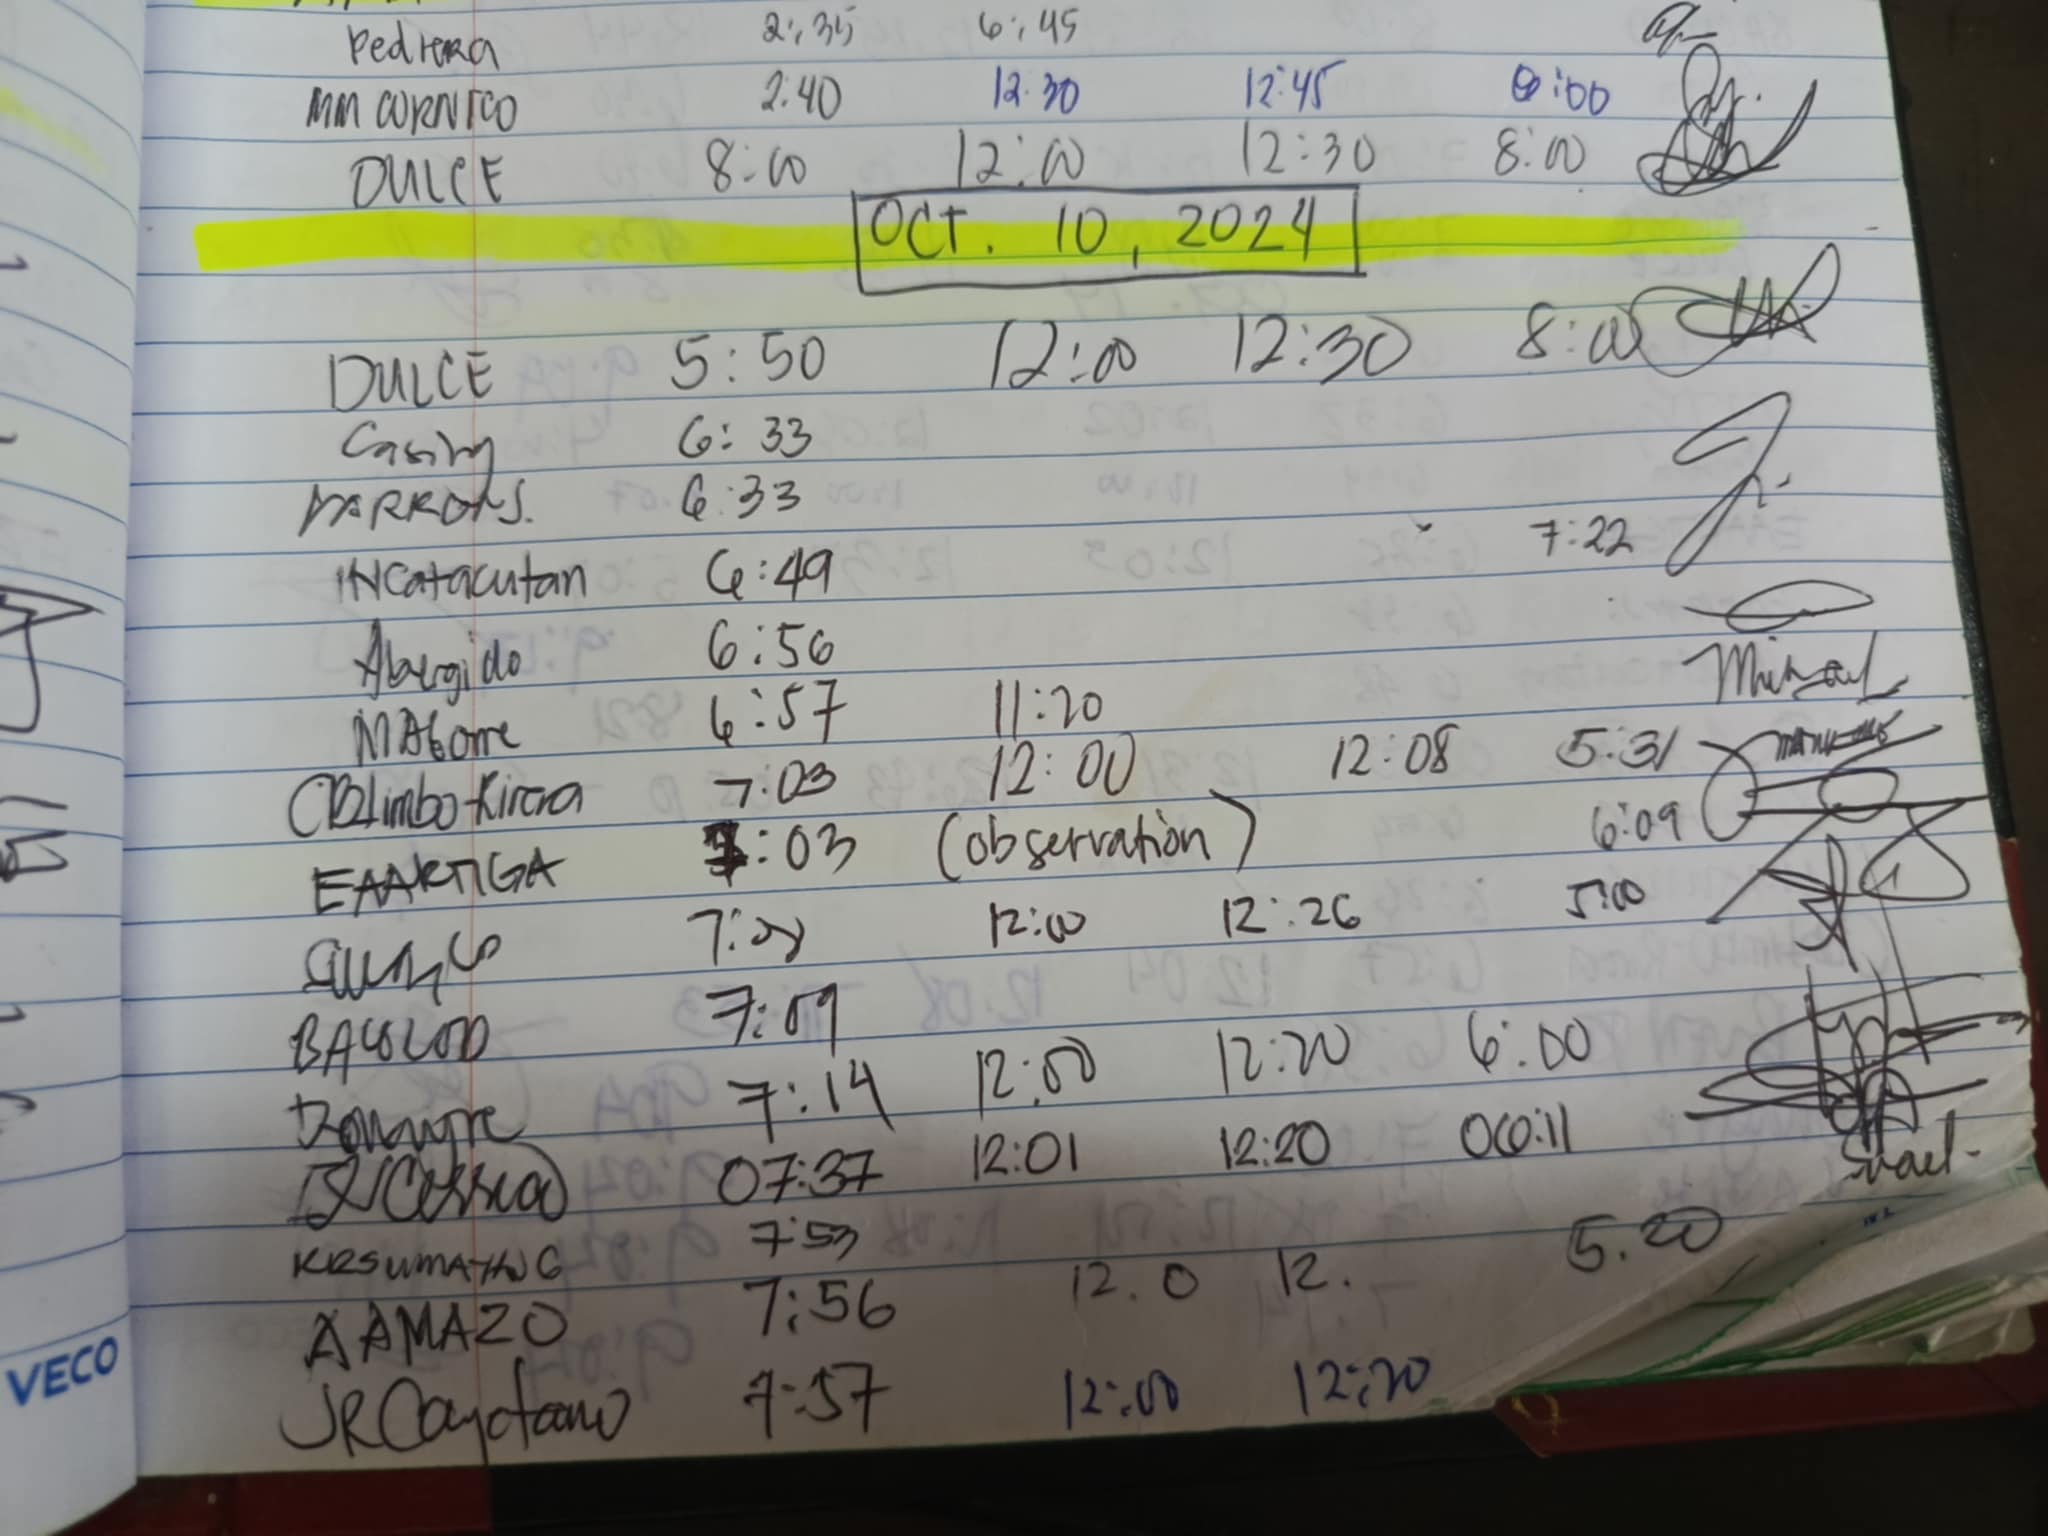 Pedrera 2:35 6:45
MM CORNICO 2:40 12:30 12:45 :00
DULCE 8:00 12:00 12:30 8:00
OCT. 10, 2024
DULCE 5:50 12:00 12:30 8:00
Casiny 6:33
6:33
INCatacutan 6:49 7:22
Abergido 6:56
6:57 11:20 Michael
CBLimbo-Rivera 7:03 12:00 12:08 5:31
EAARTIGA 7:03 (observation) 6:09
12:00 12:26 5:00
BACOLOD 7:09
7:14 12:00 12:20 6:00
07:37 12:01 12:20 06:11
KRSUMATING 7:53
AAMAZO 7:56 12.0 12. 5.20
JRCayetano 7:57 12:00 12:20
VECO